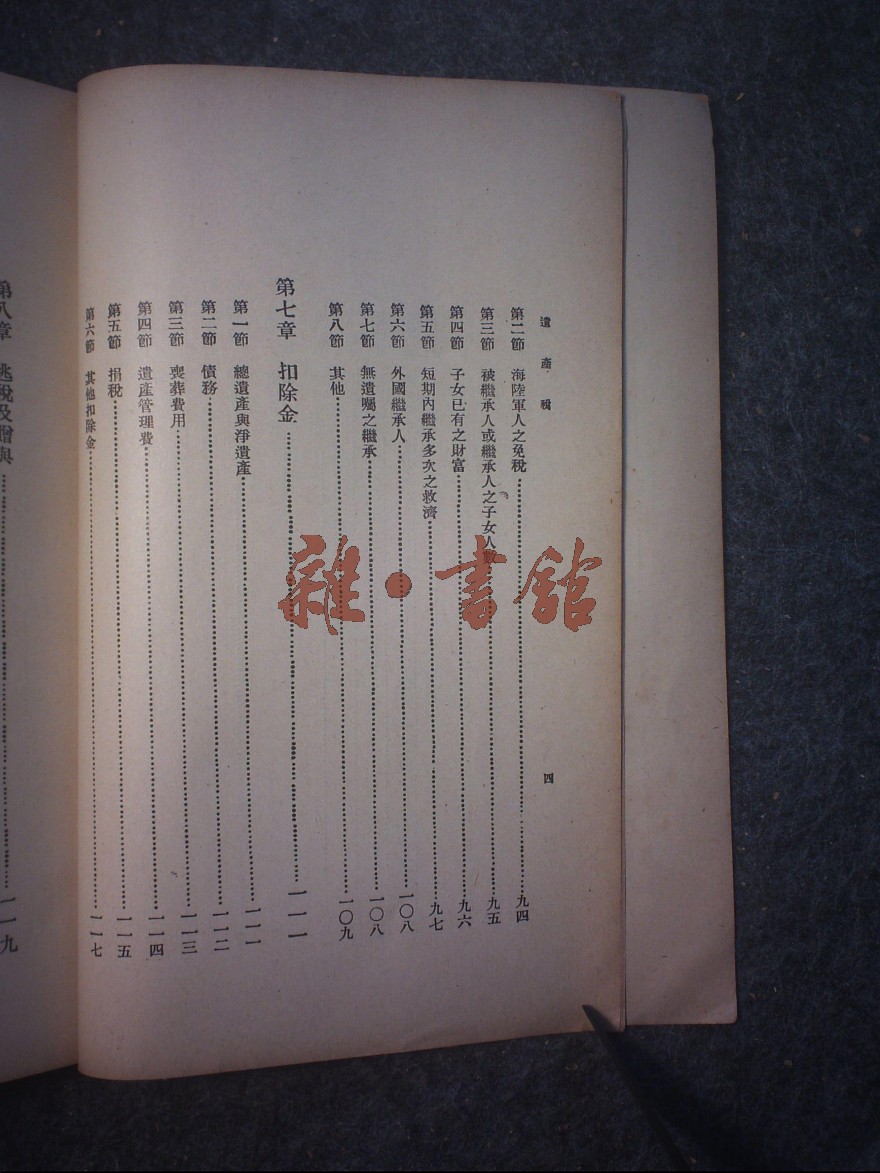 遺產稅
四
第二節 海陸軍人之免稅……九四
第三節 被繼承人或繼承人之子女人數……九五
第四節 子女已有之財富……九六
第五節 短期內繼承多次之救濟……九七
第六節 外國繼承人……一〇八
第七節 無遺囑之繼承……一〇八
第八節 其他……一〇九
第七章 扣除金……一一一
第一節 總遺產與淨遺產……一一一
第二節 債務……一一二
第三節 喪葬費用……一一三
第四節 遺產管理費……一一四
第五節 捐稅……一一五
第六節 其他扣除金……一一七
第八章 逃稅及贈與……一一九
雜·書館